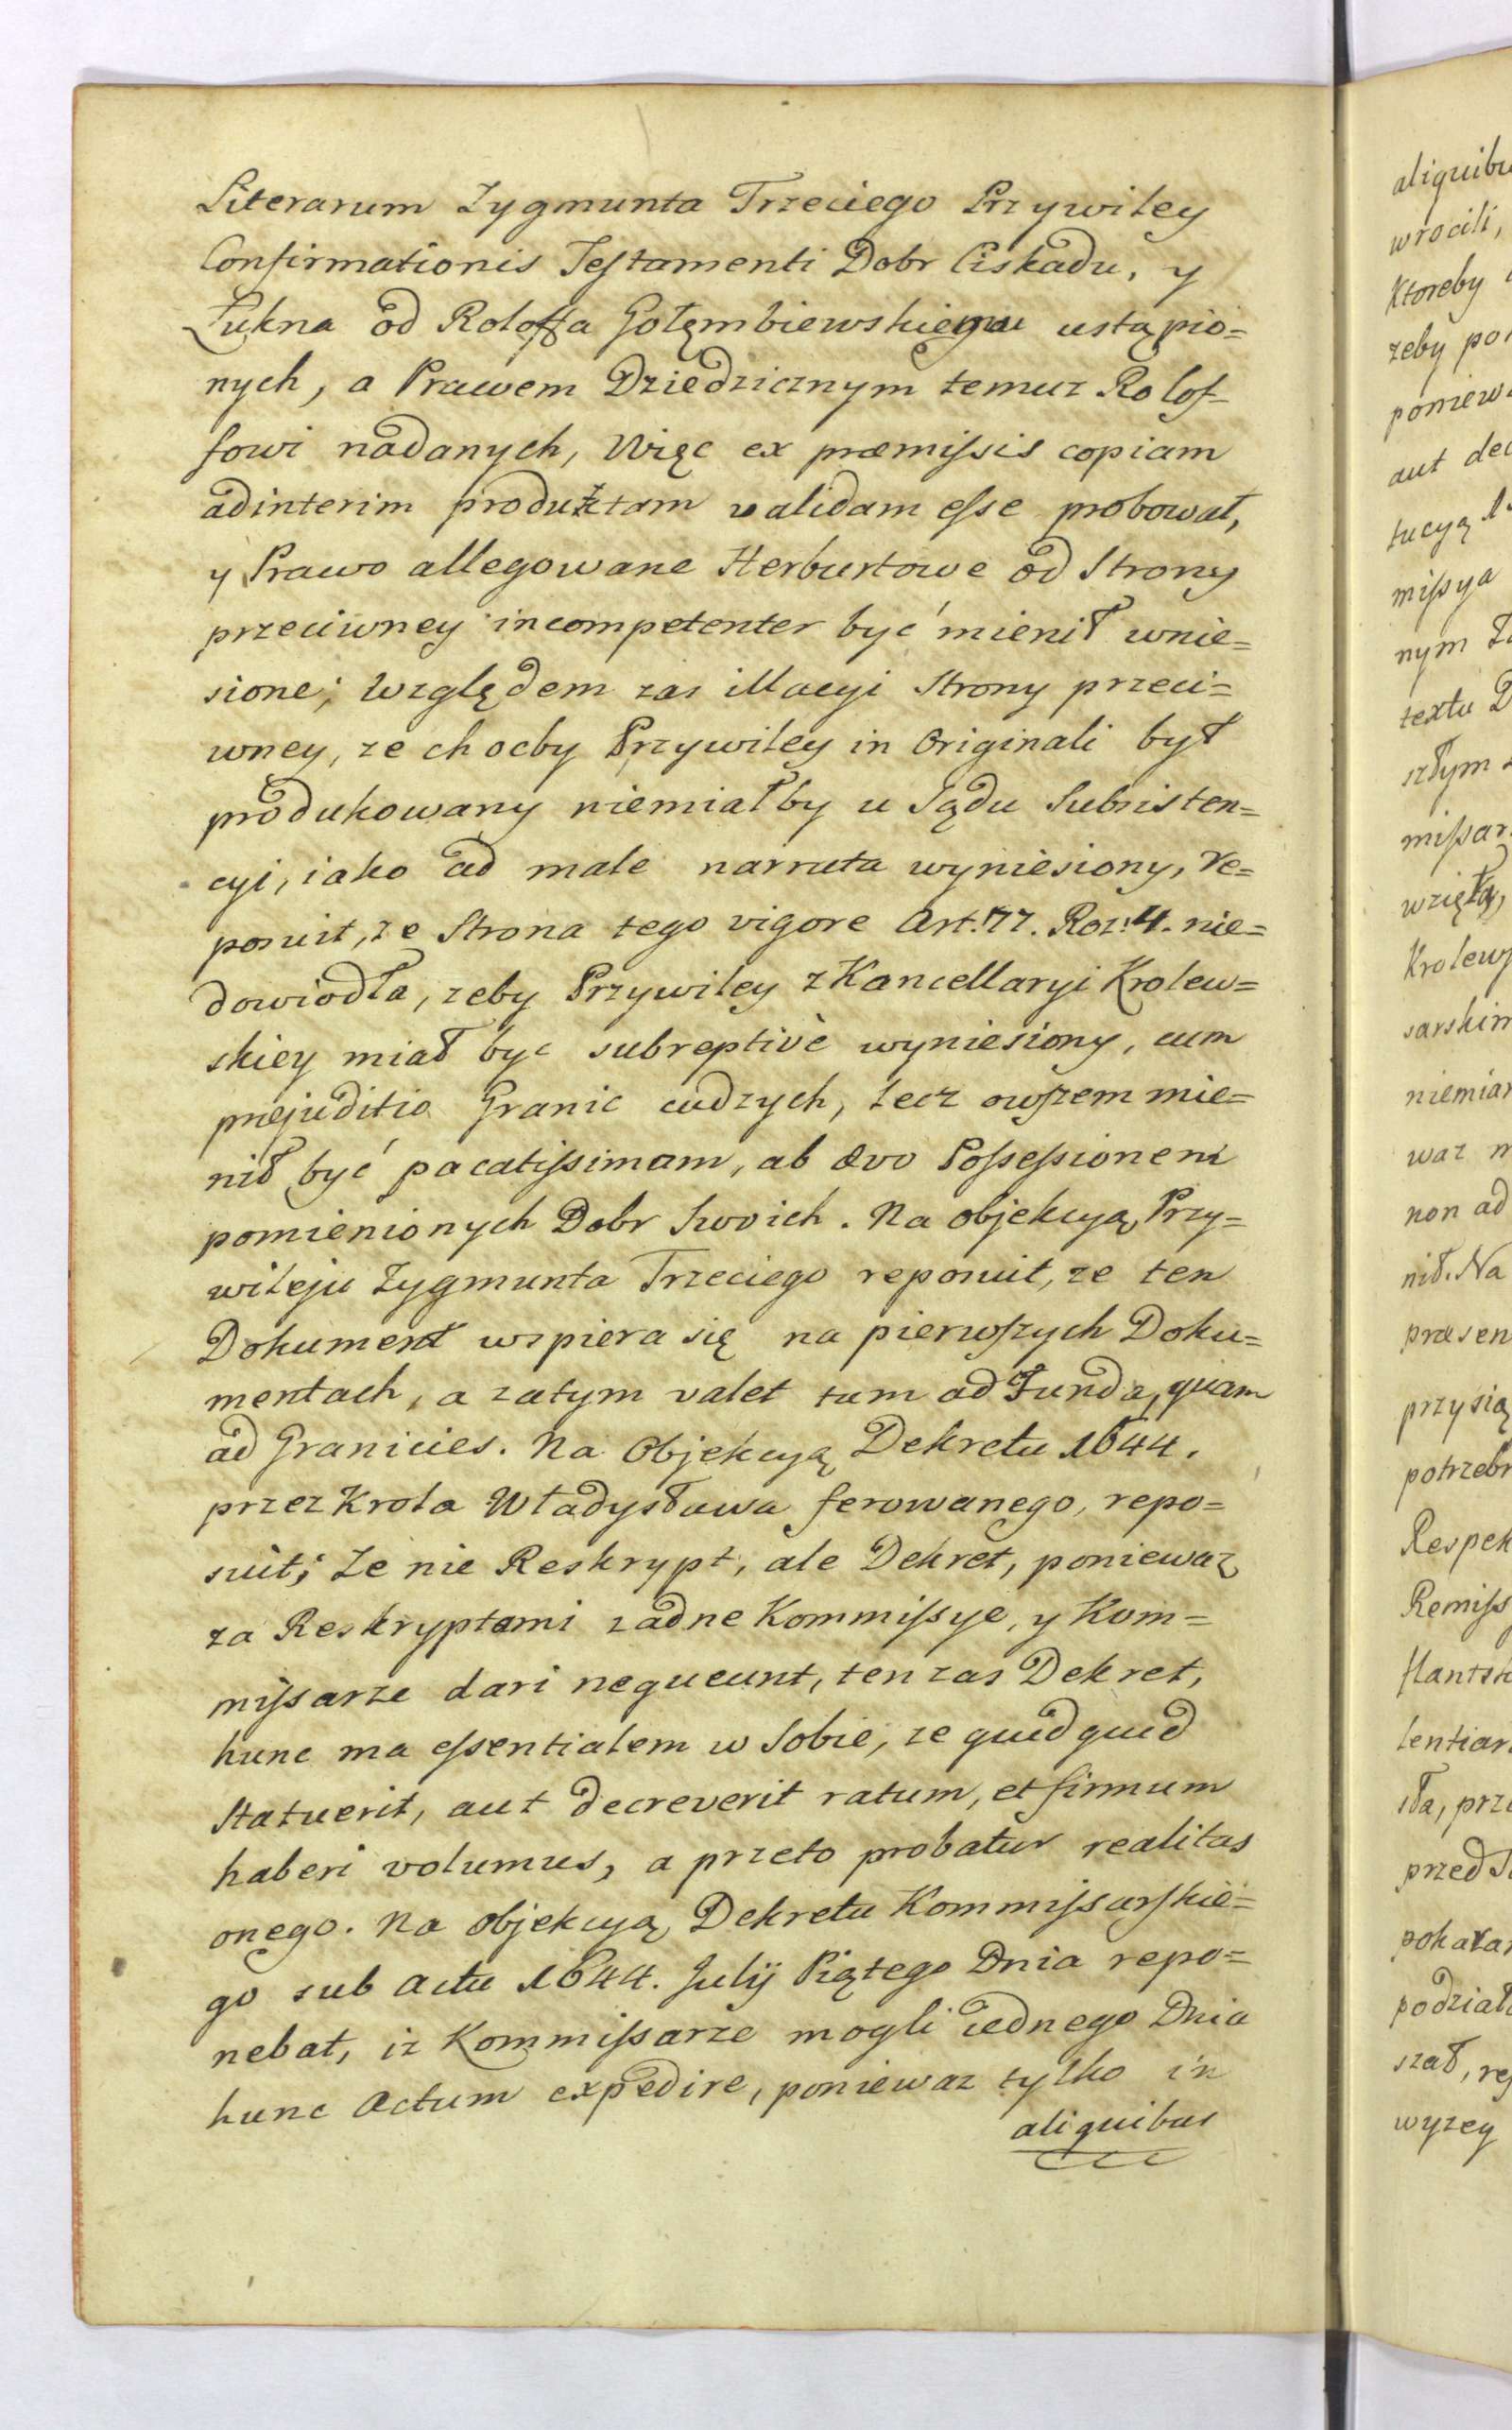 Literarum Zygmunta Trzeciego Przywiley
Confirmationis Testamenti Dobr Ciskadu, y
Łukna od Roloffa Gołęmbiewskiemu ustąpio=
nych, a Prawem Dziedzicznym temuz Rolof=
fowi nadanych, Więc ex præmissis copiam
adinterim produktam validam esse probował,
y Prawo allegowane Herburtowe od Strony
przeciwney incompetenter być mienił wnie=
sione; Względem zas illacyi Strony przeci=
wney, ze chocby Przywiley in Originali był
produkowany niemiałby u Sądu Subsisten=
cyi, iako ad male narrata wyniesiony, re=
posuit, ze Strona tego vigore Art: 77. Roz: 4. nie=
dowiodła, zeby Przywiley z Kancellaryi Krolew=
skiey miał byc subreptivè wyniesiony, cum
præjuditio Granic cudzych, lecz owszem mie=
nił być pacatissimam, ab ævo Possessionem
pomienionych Dobr Swoich. Na objekcyą Przy=
wileju Zygmunta Trzeciego reposuit, ze ten
Dokument wspiera się na pierwszych Doku=
mentach, a zatym valet tam ad Funda, quam
ad Granicies. Na Objekcyą Dekretu 1644.
przez Krola Władysława ferowanego, repo=
suit; Ze nie Reskrypt, ale Dekret, poniewaz
za Reskryptami zadne Kommissye, y Kom=
missarze dari nequeunt, ten zas Dekret,
hunc ma essentialem w Sobie, ze quidquid
Statuerit, aut decreverit ratum, et firmum
haberi volumus, a przeto probatur realitas
onego. Na objekcyą Dekretu Kommissarskie=
go sub actu 1644. Julij Piątego Dnia repo=
nebat, iz Kommissarze mogli iednego Dnia
hunc Actum expedire, poniewaz tylko in
aliquibus
wrocili,
Ktoreby
zeby
aut
tucyą
missya
nym
textu
szłym
wzięta,
niemiał
waz
non ad
nił. Na
Remiss
przed
wyzey